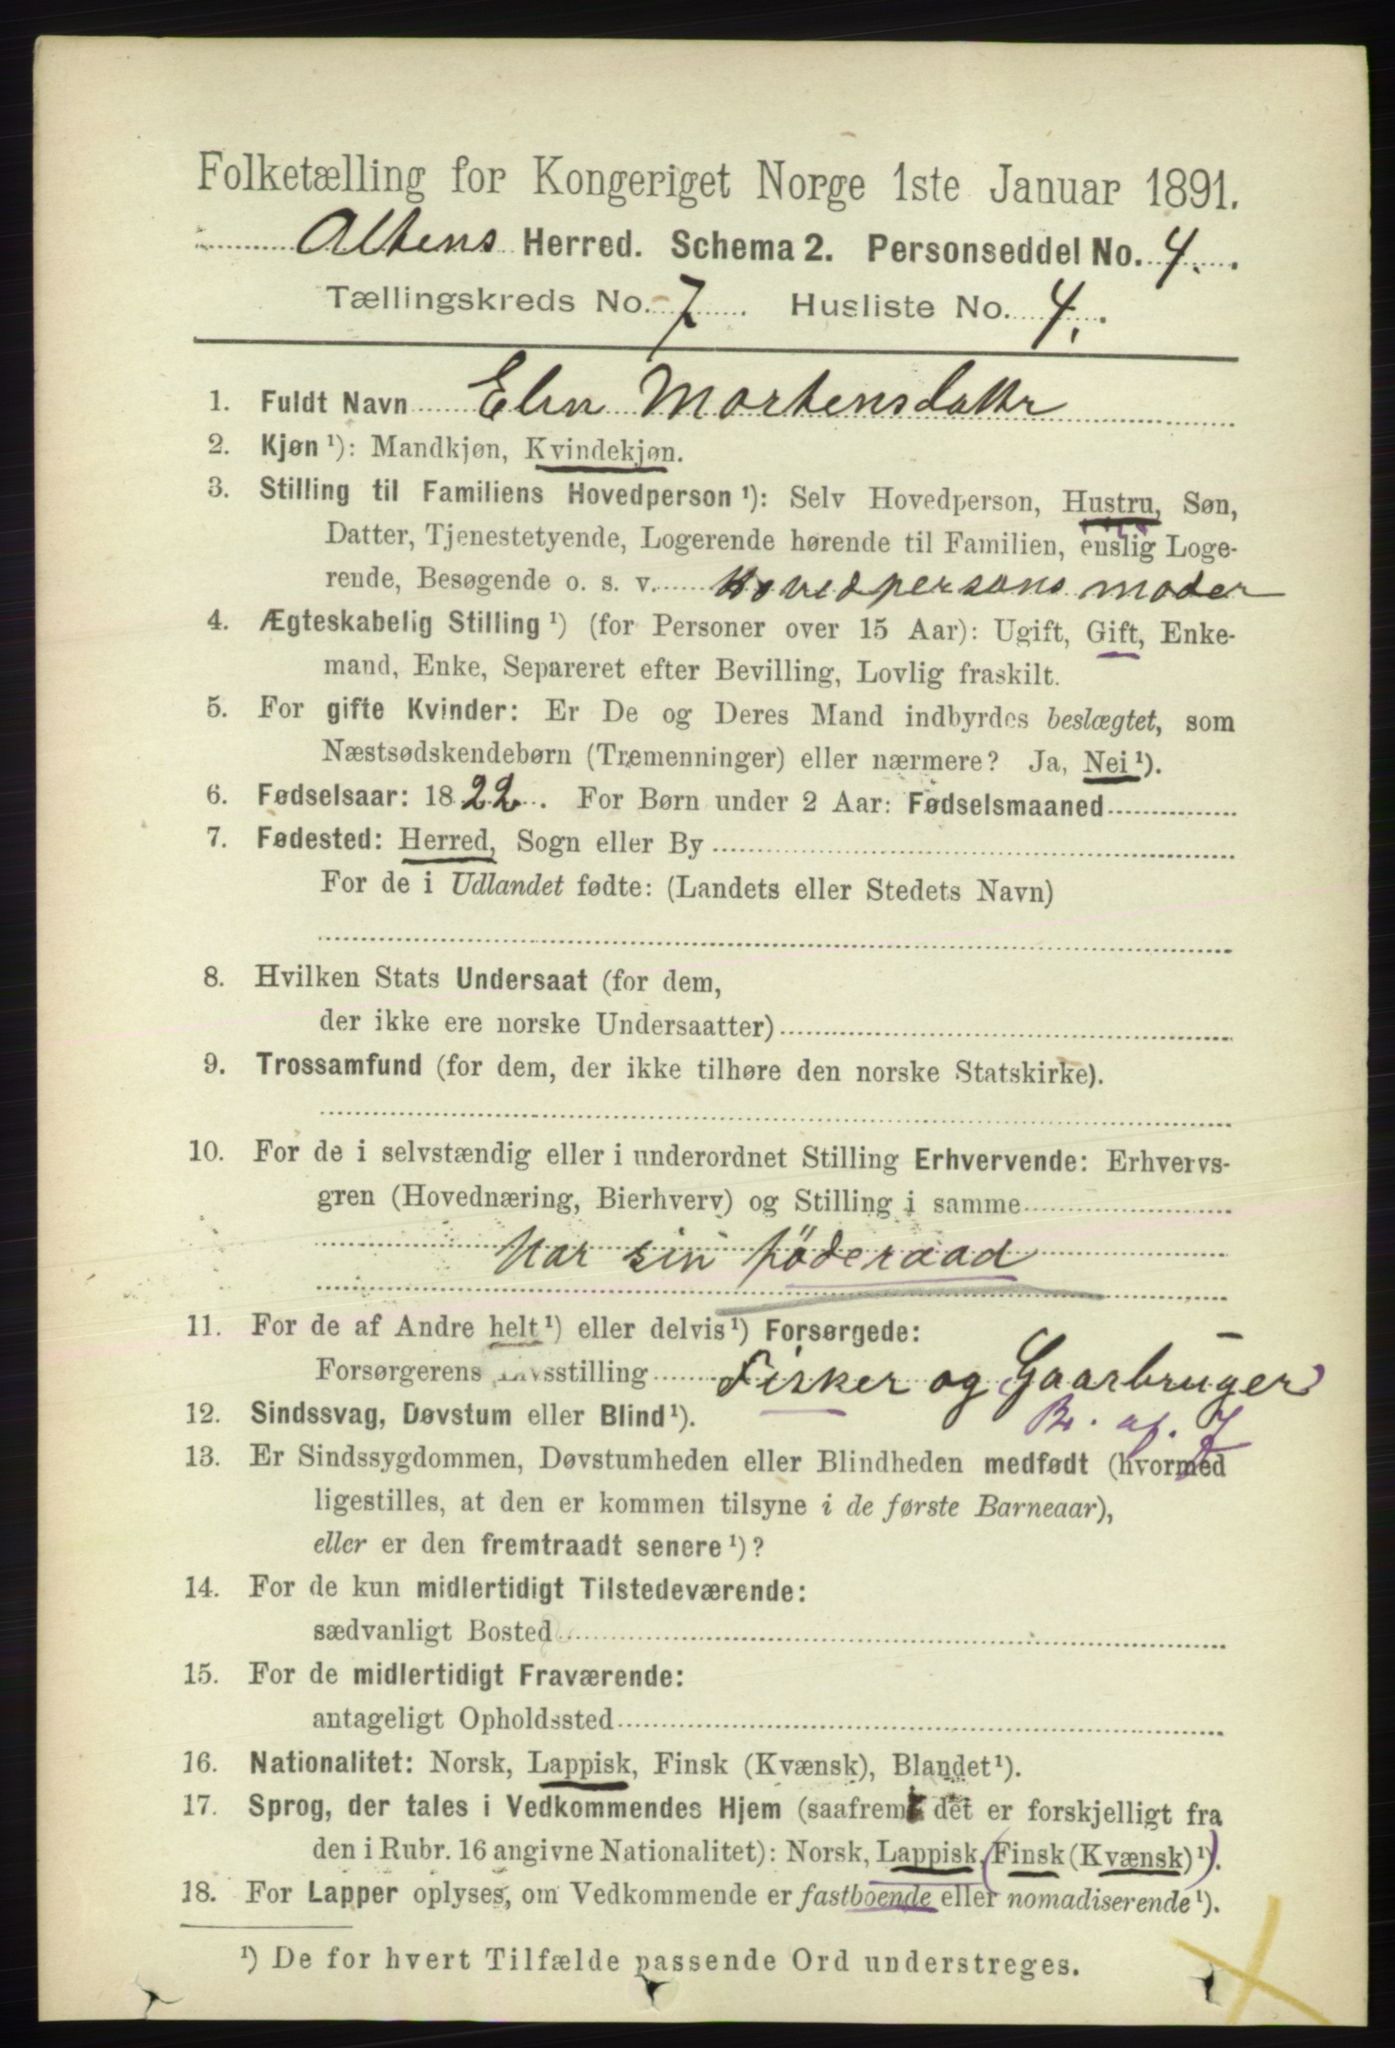 Folketælling for Kongeriget Norge 1ste Januar 1891.
Altens Herred. Schema 2. Personseddel No. 4.
Tællingskreds No. 7 Husliste No. 4.
1. Fuldt Navn Elen Mortensdattr
2. Kjøn ¹): Mandkjøn, Kvindekjøn.
3. Stilling til Familiens Hovedperson ¹): Selv Hovedperson, Hustru, Søn,
Datter, Tjenestetyende, Logerende hørende til Familien, enslig Loge-
rende, Besøgende o. s. v. Hovedpersons moder
4. Ægteskabelig Stilling ¹) (for Personer over 15 Aar): Ugift, Gift, Enke-
mand, Enke, Separeret efter Bevilling, Lovlig fraskilt.
5. For gifte Kvinder: Er De og Deres Mand indbyrdes beslægtet, som
Næstsødskendebørn (Tremenninger) eller nærmere? Ja, Nei ¹).
6. Fødselsaar: 1822. For Børn under 2 Aar: Fødselsmaaned
7. Fødested: Herred, Sogn eller By
For de i Udlandet fødte: (Landets eller Stedets Navn)
8. Hvilken Stats Undersaat (for dem,
der ikke ere norske Undersaatter)
9. Trossamfund (for dem, der ikke tilhøre den norske Statskirke).
10. For de i selvstændig eller i underordnet Stilling Erhvervende: Erhvervs-
gren (Hovednæring, Bierhverv) og Stilling i samme
Har sin föderaad
11. For de af Andre helt ¹) eller delvis ¹) Forsørgede:
Forsørgerens Livsstilling Fisker og Gaarbruger
12. Sindssvag, Døvstum eller Blind ¹).
13. Er Sindssygdommen, Døvstumheden eller Blindheden medfødt (hvormed
ligestilles, at den er kommen tilsyne i de første Barneaar),
eller er den fremtraadt senere ¹)?
14. For de kun midlertidigt Tilstedeværende:
sædvanligt Bosted
15. For de midlertidigt Fraværende:
antageligt Opholdssted
16. Nationalitet: Norsk, Lappisk, Finsk (Kvænsk), Blandet ¹).
17. Sprog, der tales i Vedkommendes Hjem (saafremt det er forskjelligt fra
den i Rubr. 16 angivne Nationalitet): Norsk, Lappisk, (Finsk (Kvænsk) ¹)).
18. For Lapper oplyses, om Vedkommende er fastboende eller nomadiserende ¹).
¹) De for hvert Tilfælde passende Ord understreges.